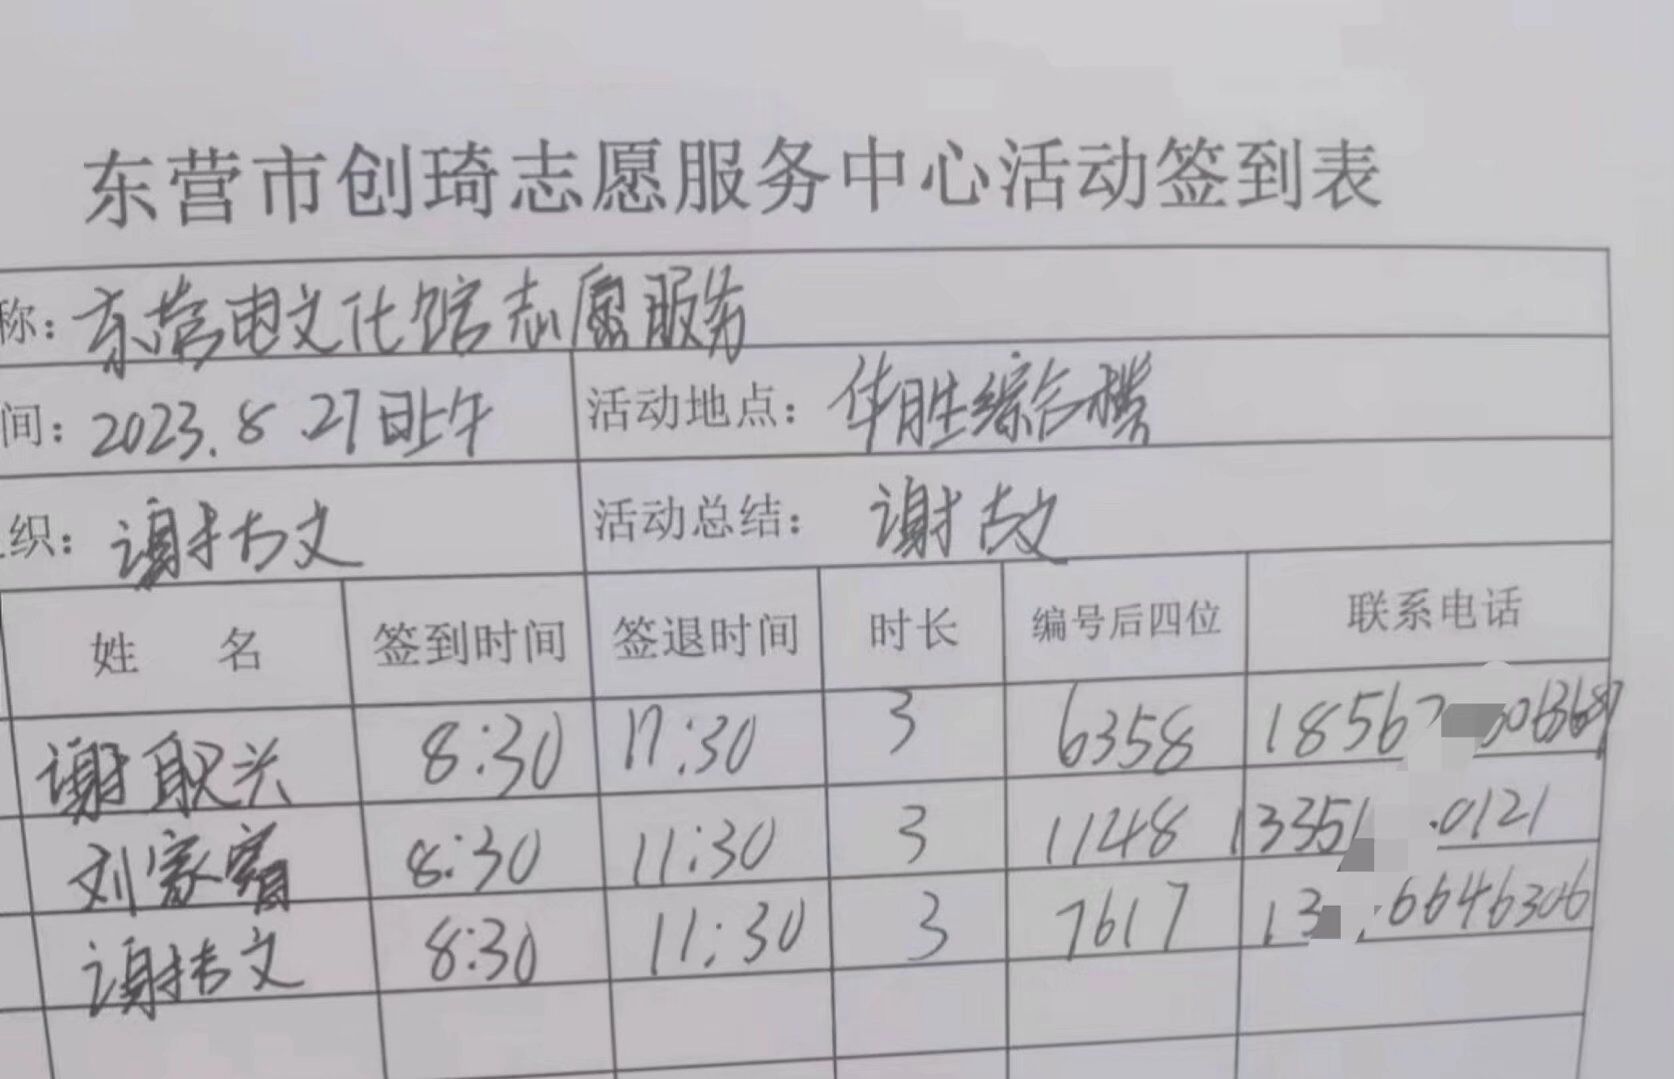 东营市创琦志愿服务中心活动签到表
称：东营市文化馆志愿服务
间：2023.8.27日上午 活动地点：华胜综合楼
织：谢 文 活动总结：谢 文
姓 名 签到时间 签退时间 时长 编号后四位 联系电话
谢 兴 8:30 11:30 3 6358
刘家 8:30 11:30 3 1148 13351 0121
谢 文 8:30 11:30 3 7617 13 6646306